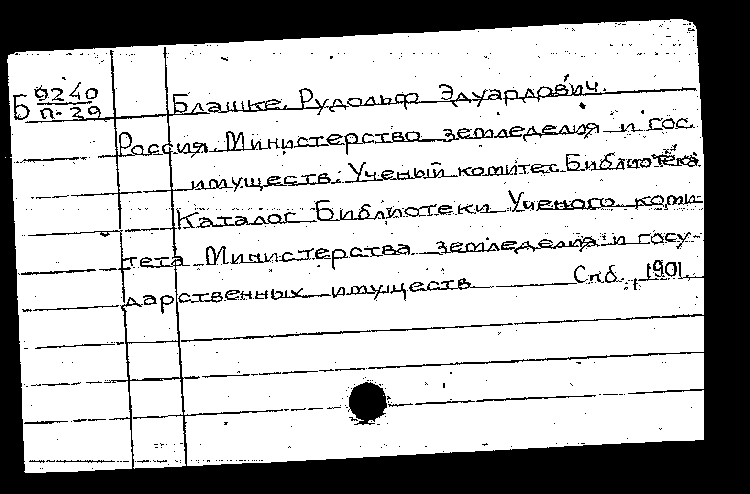 Б 9240
п-29
Блашке, Рудольф Эдуардович.
Россия. Министерство земледелия и гос.
имуществ. Ученый комитет. Библиотека
Каталог Библиотеки Ученого коми-
тета Министерства земледелия и госу-
дарственных имуществ Спб., 1901.